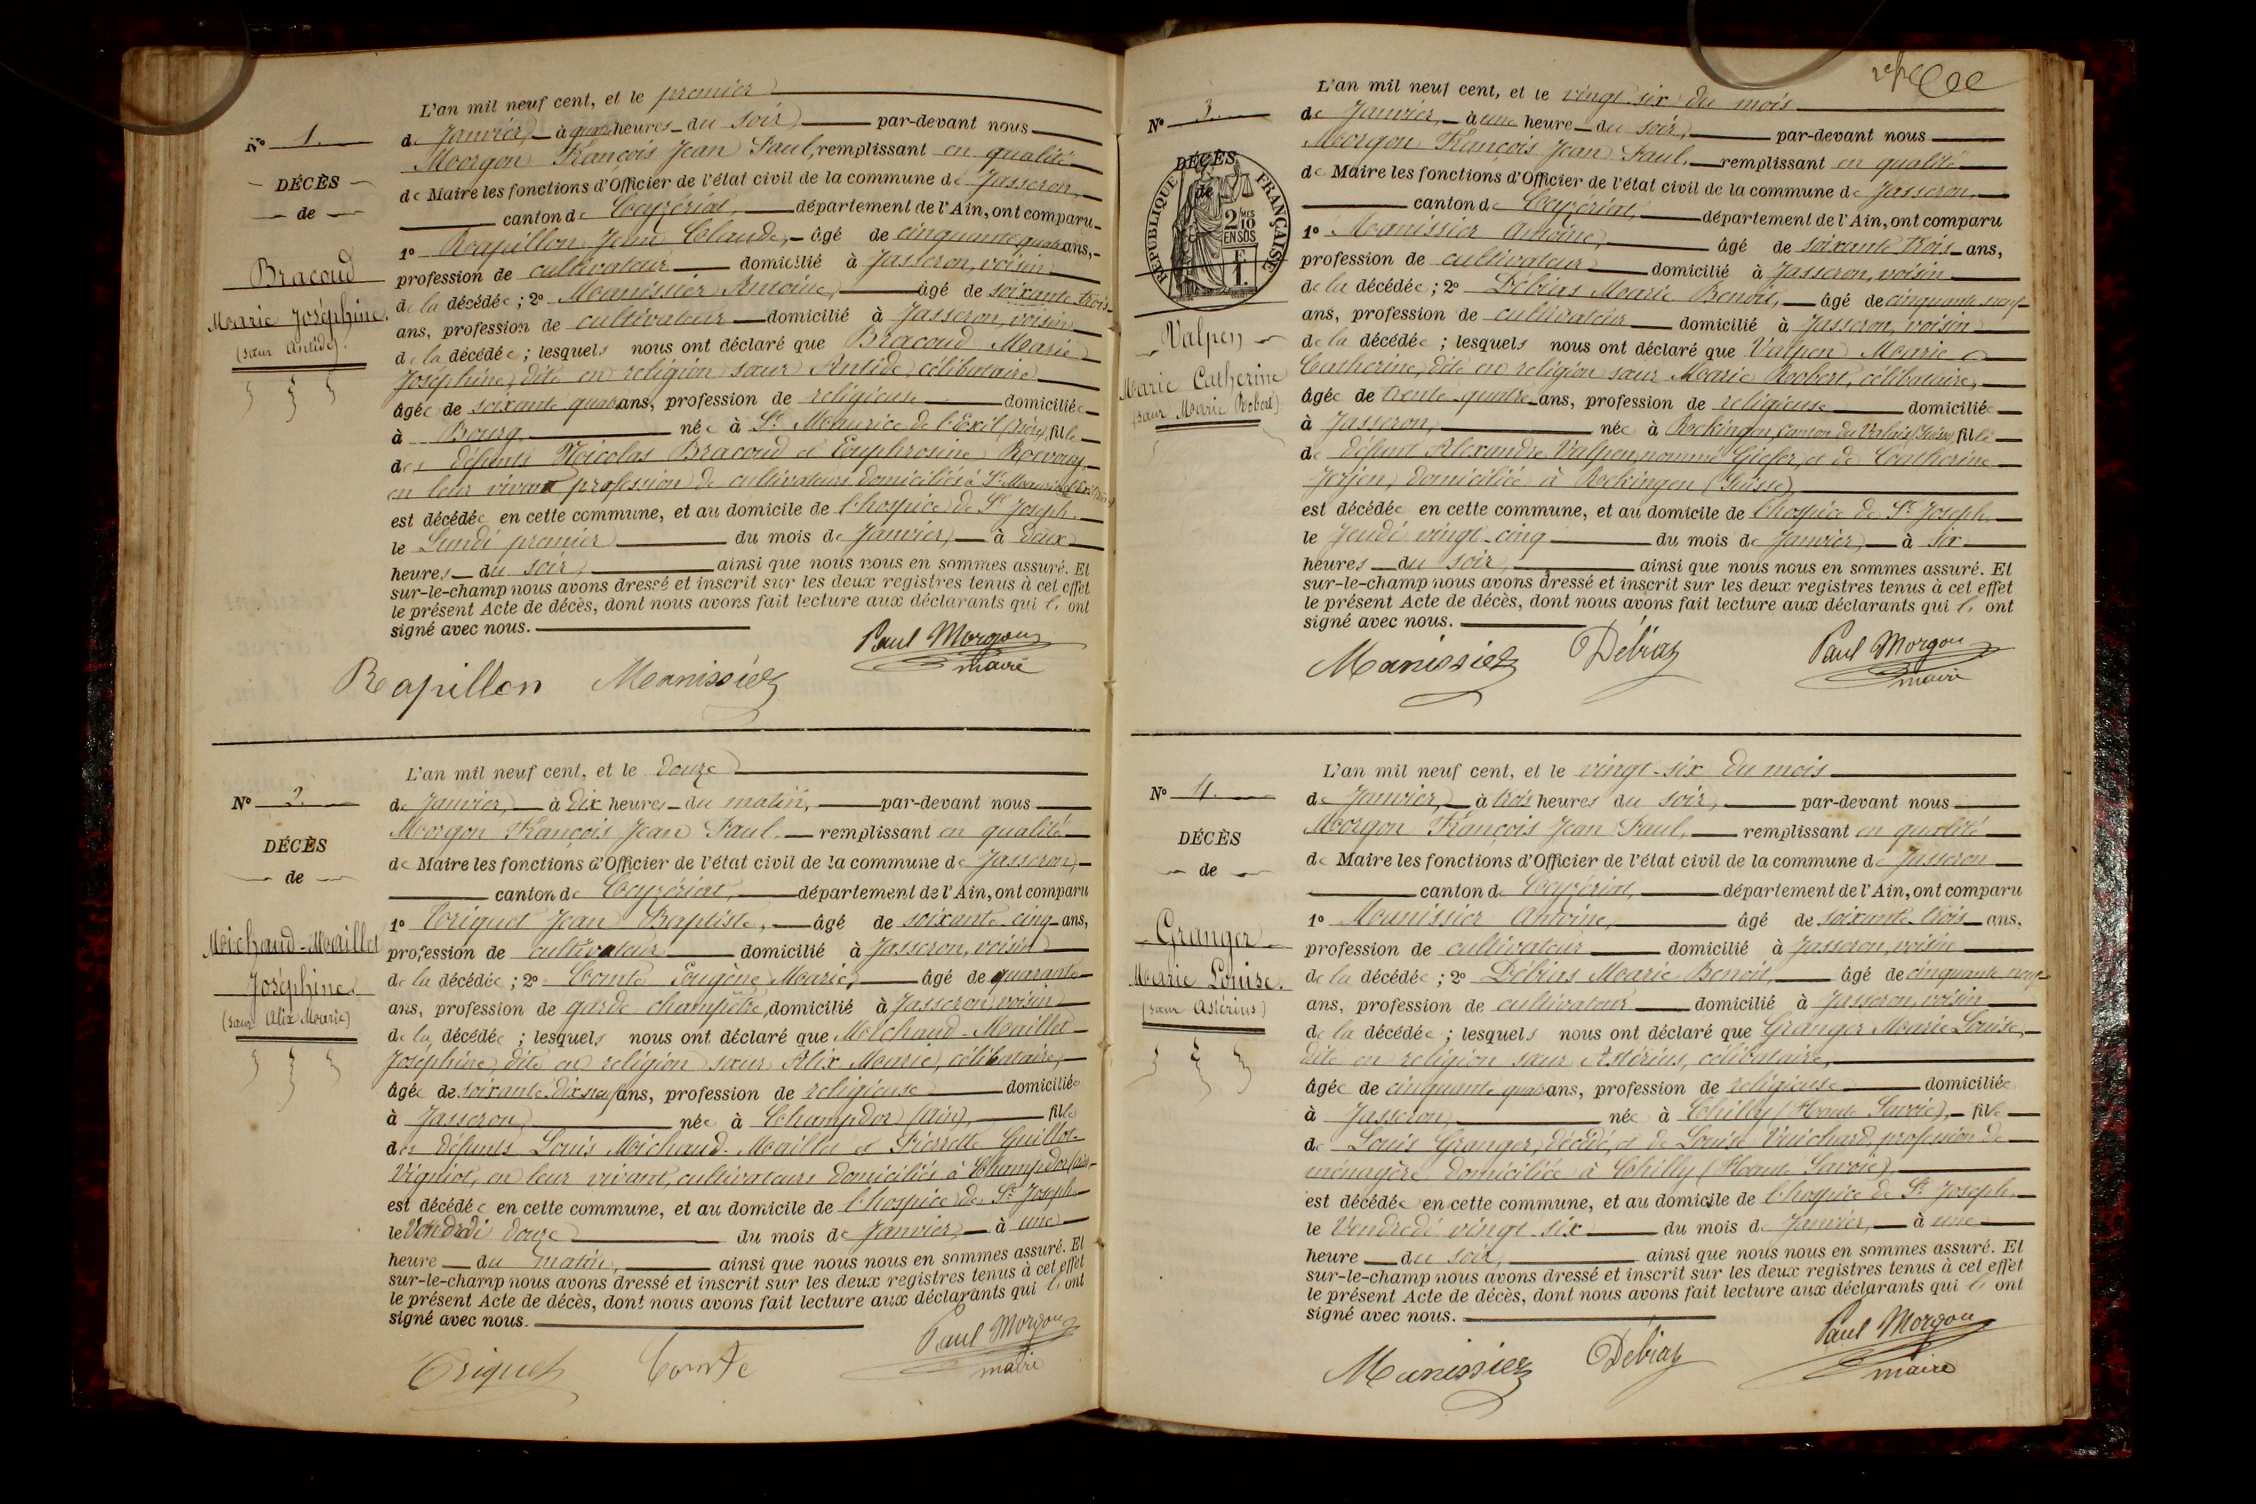 L'an mil neuf cent, et le premier
N° 1. de Janvier, à quatre heures du soir, par-devant nous
Morgon François Jean Paul, remplissant en qualité
DÉCÈS de Maire les fonctions d'Officier de l'état civil de la commune de Jasseron,
de canton de Ceyzériat, département de l'Ain, ont comparu
1° Rapillon Jean Claude, âgé de cinquante quatre ans,
Bracoud profession de cultivateur domicilié à Jasseron, voisin
de la décédée ; 2° Manissier Antoine, âgé de soixante trois
Marie Joséphine. ans, profession de cultivateur domicilié à Jasseron, voisin
(sœur Antide). de la décédée ; lesquels nous ont déclaré que Bracoud Marie
Joséphine, dite en religion sœur Antide, célibataire
âgée de soixante quatre ans, profession de religieuse domiciliée
à Bourg, née à St Maurice de l'Exil (Isère), fille
des défunts Nicolas Bracoud et Euphrosine
en leur vivant profession de cultivateurs domiciliés à St Maurice
est décédée en cette commune, et au domicile de l'hospice de St Joseph
le Lundi premier du mois de Janvier, à deux
heures du soir, ainsi que nous nous en sommes assuré. Et
sur-le-champ nous avons dressé et inscrit sur les deux registres tenus à cet effet
le présent Acte de décès, dont nous avons fait lecture aux déclarants qui l'ont
signé avec nous.
Rapillon Manissier Paul Morgon
maire
L'an mil neuf cent, et le douze
N° 2. de Janvier, à dix heures du matin, par-devant nous
Morgon François Jean Paul. remplissant en qualité
DÉCÈS de Maire les fonctions d'Officier de l'état civil de la commune de Jasseron,
de canton de Ceyzériat, département de l'Ain, ont comparu
1° Triquet Jean Baptiste, âgé de soixante cinq ans,
Michaud-Maillet profession de cultivateur domicilié à Jasseron, voisin
de la décédée ; 2° Comte Eugène Marie, âgé de quarante
Joséphine ans, profession de garde champêtre, domicilié à Jasseron, voisin
(sœur Alix Marie) de la décédée ; lesquels nous ont déclaré que Michaud-Maillet
Joséphine, dite en religion sœur Alix Marie, célibataire,
âgée de soixante dix neuf ans, profession de religieuse domiciliée
à Jasseron, née à Champdor (Ain), fille
des défunts Louis Michaud-Maillet et Pierrette Guillot-
Vigniot, en leur vivant, cultivateurs domiciliés à Champdor (Ain)
est décédée en cette commune, et au domicile de l'hospice de St Joseph
le Vendredi douze du mois de Janvier, à une
heure du matin, ainsi que nous nous en sommes assuré. Et
sur-le-champ nous avons dressé et inscrit sur les deux registres tenus à cet effet
le présent Acte de décès, dont nous avons fait lecture aux déclarants qui l'ont
signé avec nous.
Triquet Comte Paul Morgon
maire
L'an mil neuf cent, et le vingt-six du mois
N° 3. de Janvier, à une heure du soir, par-devant nous
Morgon François Jean Paul. remplissant en qualité
DÉCÈS de Maire les fonctions d'Officier de l'état civil de la commune de Jasseron,
de canton de Ceyzériat, département de l'Ain, ont comparu
RÉPUBLIQUE FRANÇAISE
2 MES 10 EN SUS
1° Manissier Antoine, âgé de soixante trois ans,
profession de cultivateur domicilié à Jasseron, voisin
de la décédée ; 2° Débias Marie Benoit, âgé de cinquante neuf
ans, profession de cultivateur domicilié à Jasseron, voisin
Valpen de la décédée ; lesquels nous ont déclaré que Valpen Marie
Marie Catherine Catherine, dite en religion sœur Marie Robert, célibataire,
(sœur Marie Robert) âgée de trente-quatre ans, profession de religieuse domiciliée
à Jasseron, née à Reckingen, canton du Valais (Suisse) fille
de défunt Alexandre Valpen, nommé et de Catherine
Jerjen, domiciliée à Reckingen (Suisse),
est décédée en cette commune, et au domicile de l'hospice de St Joseph
le Jeudi vingt-cinq du mois de Janvier, à six
heures du soir, ainsi que nous nous en sommes assuré. Et
sur-le-champ nous avons dressé et inscrit sur les deux registres tenus à cet effet
le présent Acte de décès, dont nous avons fait lecture aux déclarants qui l'ont
signé avec nous.
Manissier Débias Paul Morgon
maire
L'an mil neuf cent, et le vingt-six du mois
N° 4. de Janvier, à trois heures du soir, par-devant nous
Morgon François Jean Paul, remplissant en qualité
DÉCÈS de Maire les fonctions d'Officier de l'état civil de la commune de Jasseron
de canton de Ceyzériat, département de l'Ain, ont comparu
1° Manissier Antoine, âgé de soixante-trois ans,
Granger profession de cultivateur domicilié à Jasseron, voisin
Marie Louise. de la décédée ; 2° Débias Marie Benoit, âgé de cinquante neuf
(sœur Astérius) ans, profession de cultivateur domicilié à Jasseron, voisin
de la décédée ; lesquels nous ont déclaré que Granger Marie Louise,
dite en religion sœur Astérius, célibataire,
âgée de cinquante quatre ans, profession de religieuse domiciliée
à Jasseron, née à Chilly (Haute Savoie), fille
de Louis Granger, décédé, et de Louise Vuichard, profession de
ménagère domiciliée à Chilly (Haute Savoie),
est décédée en cette commune, et au domicile de l'hospice de St Joseph
le Vendredi vingt-six du mois de Janvier, à une
heure du soir, ainsi que nous nous en sommes assuré. Et
sur-le-champ nous avons dressé et inscrit sur les deux registres tenus à cet effet
le présent Acte de décès, dont nous avons fait lecture aux déclarants qui l'ont
signé avec nous.
Manissier Débias Paul Morgon
maire